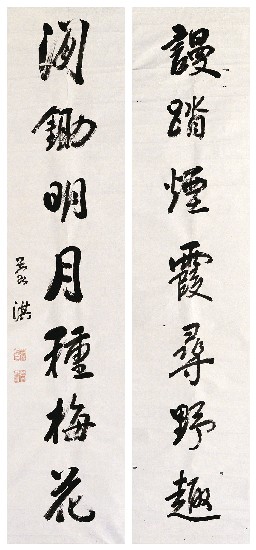 謾踏煙霞尋野趣
鋤明月種梅花
淇